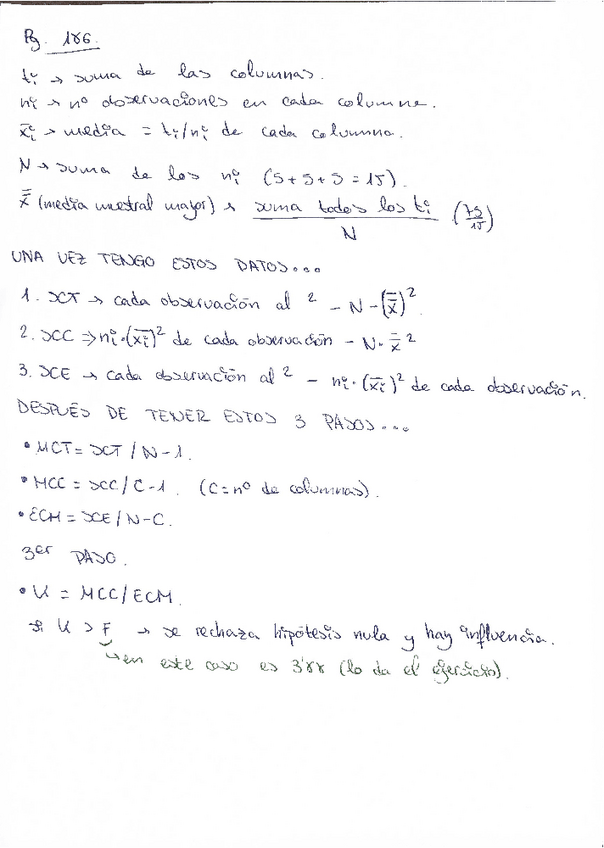 Pg. 186.
ti → suma de las columnas.
ni → nº observaciones en cada columna.
x̄i → media = ti/ni de cada columna.
N → suma de los ni (5+5+5=15).
x̿ (media muestral mayor) → suma todos los ti / N (75/15)
UNA VEZ TENGO ESTOS DATOS...
1. SCT → cada observación al ² - N - (x̿)²
2. SCC ⇒ ni·(x̄i)² de cada observación - N·x̿²
3. SCE → cada observación al ² - ni·(x̄i)² de cada observación.
DESPUÉS DE TENER ESTOS 3 PASOS...
• MCT = SCT / N-1.
• MCC = SCC / C-1. (C = nº de columnas).
• ECM = SCE / N-C.
3er PASO.
• U = MCC/ECM.
si U > F → se rechaza hipótesis nula y hay influencia.
↳ en este caso es 3'88 (lo da el ejercicio).